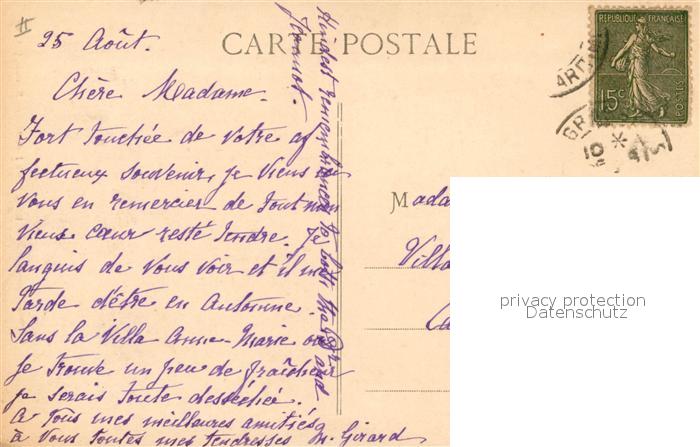 II
CARTE POSTALE
REPUBLIQUE FRANÇAISE
15c
POSTES
25 Août.
Chère Madame.
Fort touchée de votre af
fectueux souvenir, je viens
vous en remercier de tout mon
vieux cœur resté tendre. Je
languis de vous voir et il me
tarde d'être en Automne.
Sans la Villa Anne-Marie où
je trouve un peu de fraîcheur
je serais toute desséchée.
à tous mes meilleures amitiés
à vous toutes mes tendresses M. Girard
Kindest remembrances to both
and
Mada
Villa
Ca
privacy protection
Datenschutz